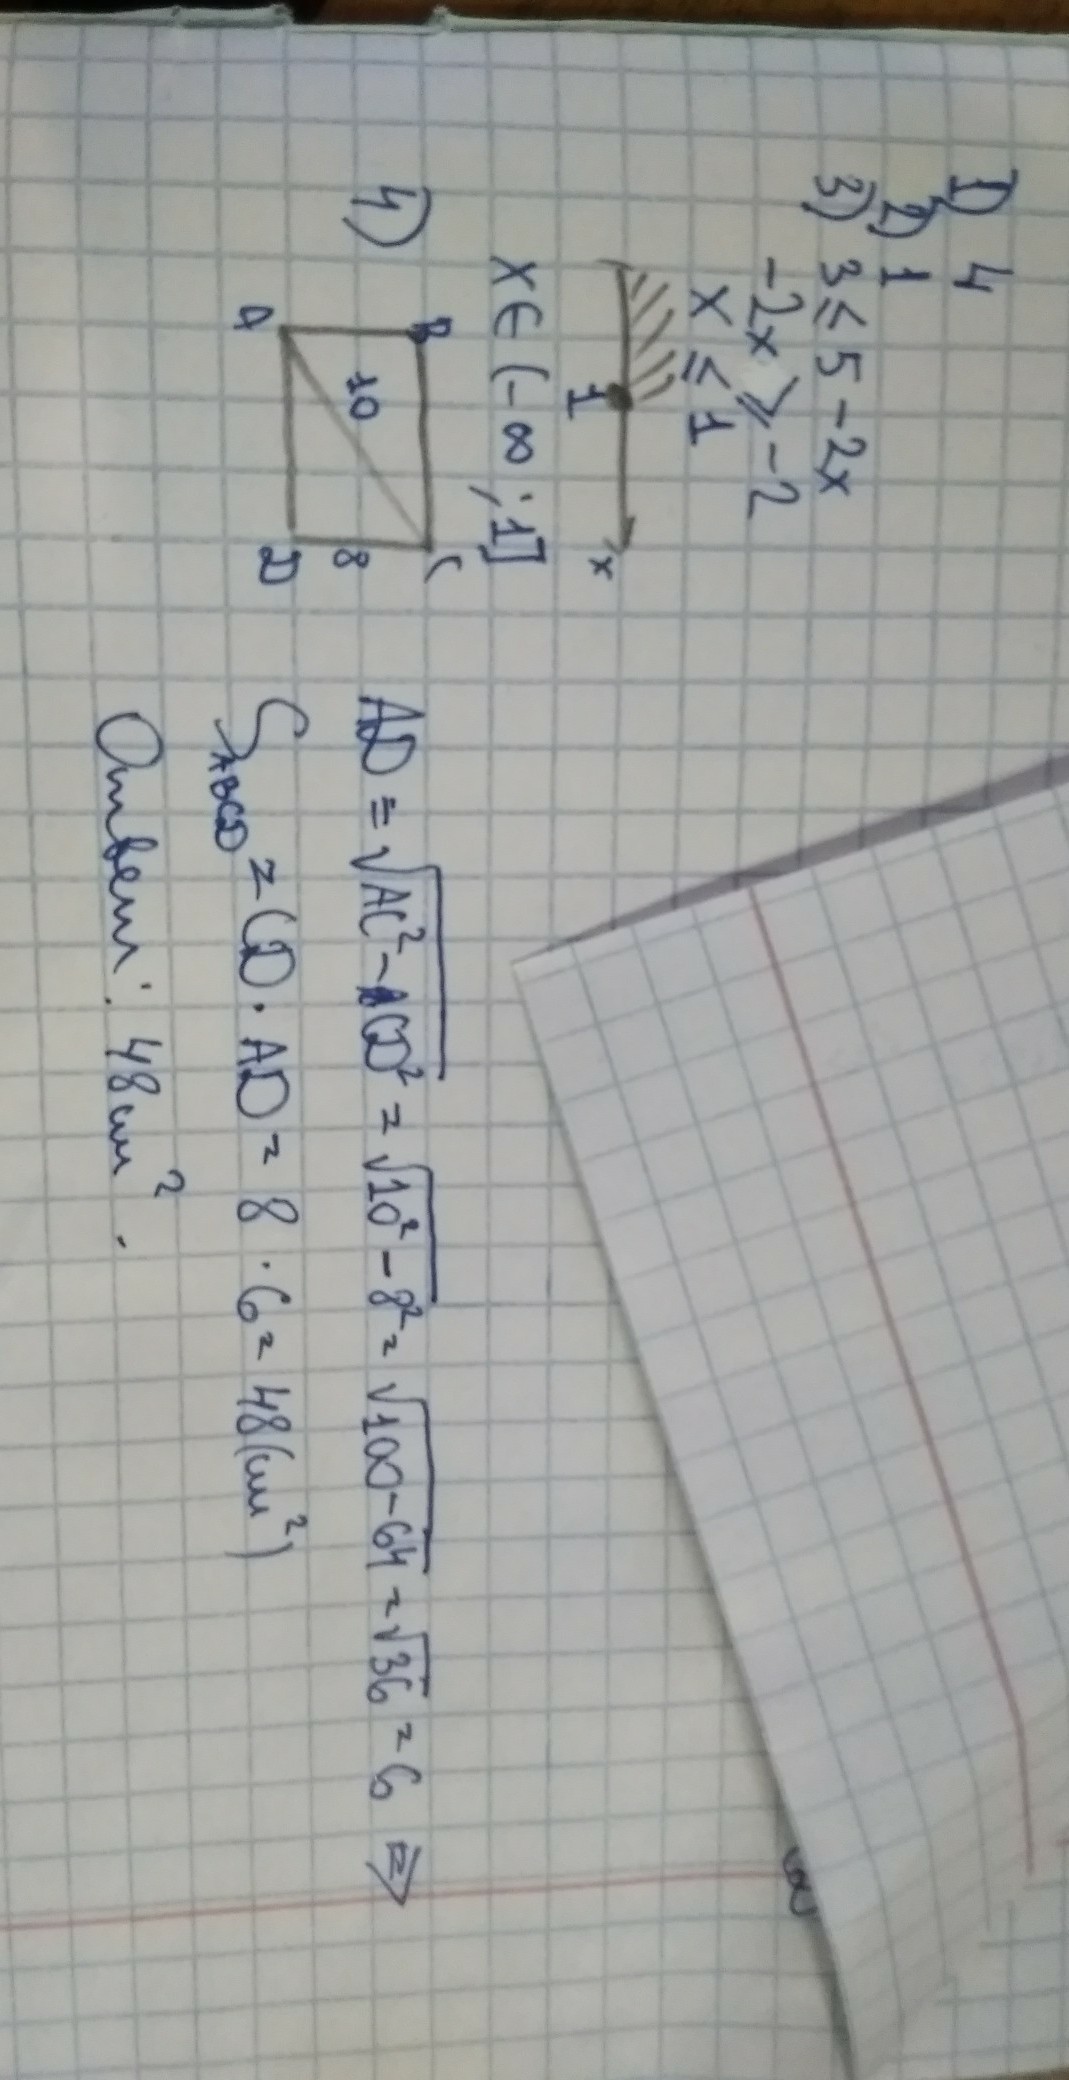 1) 4
2) 1
3) 3 ≤ 5 - 2x
-2x ≥ -2
x ≤ 1
1 x
x ∈ (-∞; 1]
4)
B C
10 8
A D
AD = √AC² - CD² = √10² - 8² = √100 - 64 = √36 = 6 ⇒
S ABCD = CD · AD = 8 · 6 = 48 (см²)
Ответ: 48 см².